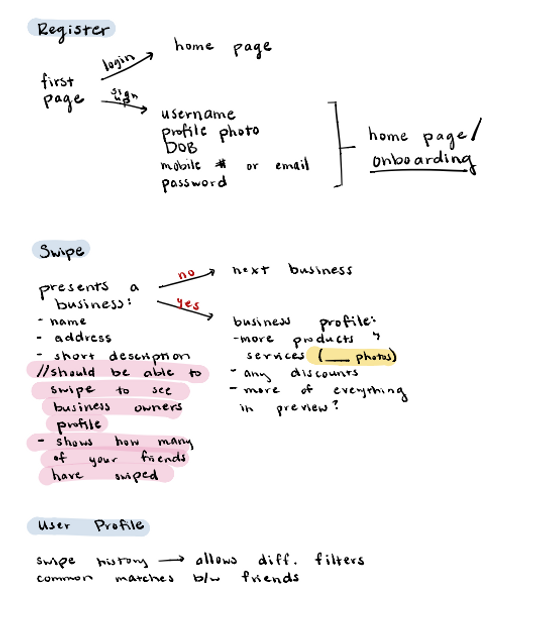 Register
login
home page
first
page
sign
up
username
profile photo
DOB
mobile # or email
password
home page/
onboarding
Swipe
presents a
business:
- name
- address
- short description
//should be able to
swipe to see
business owners
profile
- shows how many
of your friends
have swiped
no
next business
yes
business profile:
-more products &
services (___ photos)
- any discounts
- more of everything
in preview?
User Profile
swipe history → allows diff. filters
common matches b/w friends